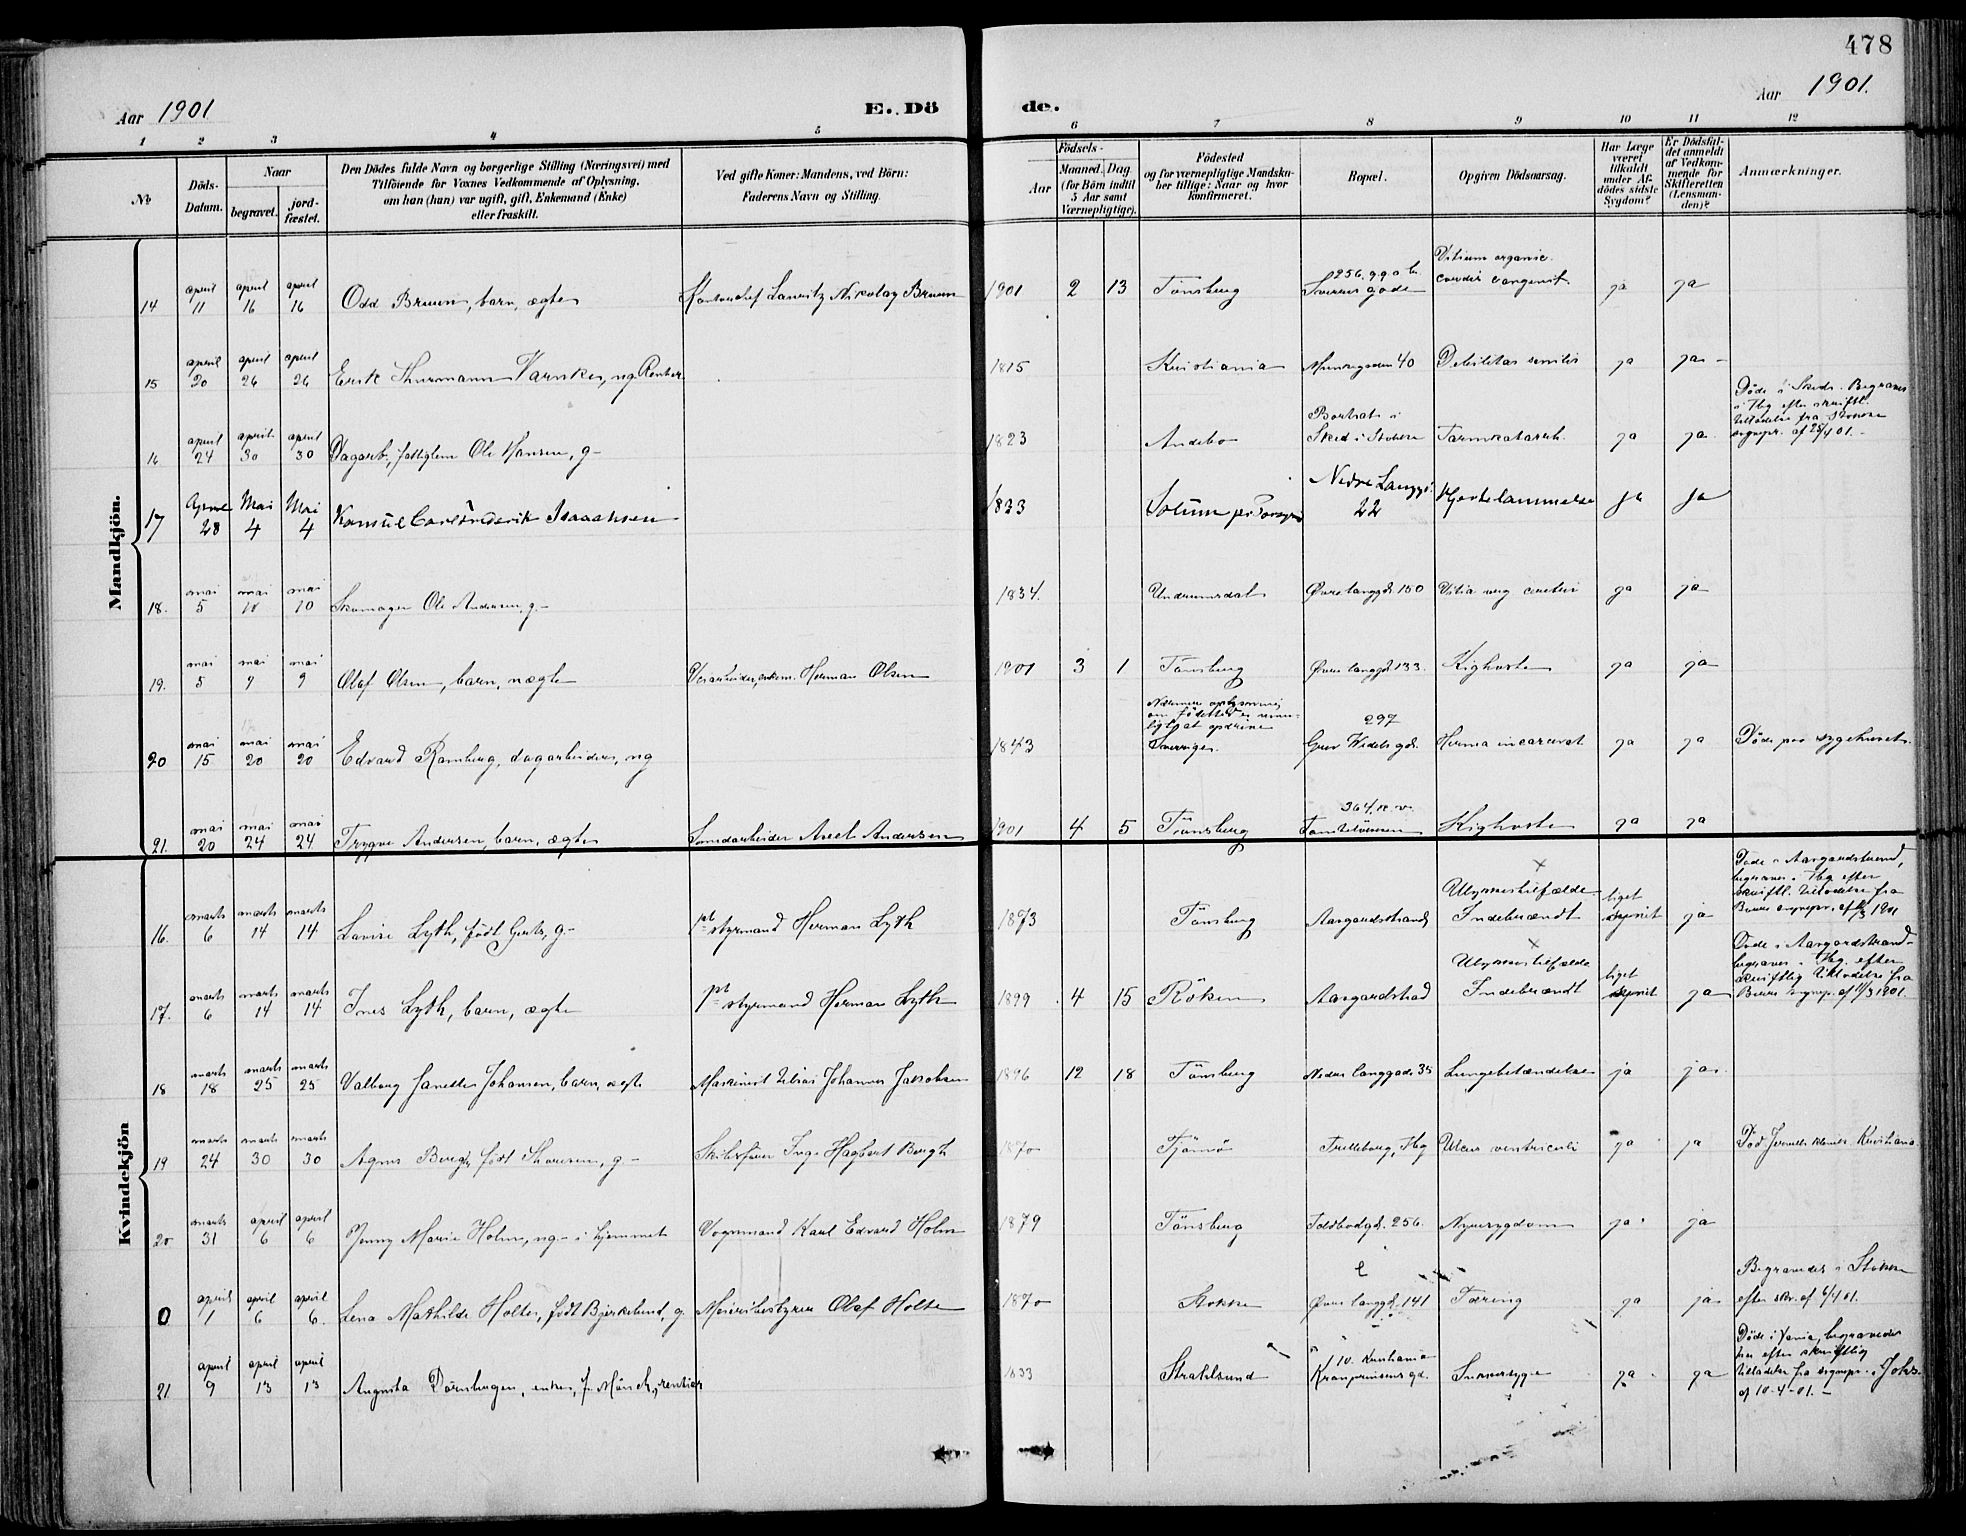 478
Aar 1901
E. Dö
de.
Aar 1901.
1 2 3 4 5 6 7 8 9 10 11 12
No
Döds-
Datum.
Naar
begravet.
jord-
fæstet.
Den Dödes fulde Navn og borgerlige Stilling (Næringsvei) med
Tilföiende for Voxnes Vedkommende af Oplysning,
om han (hun) var ugift, gift, Enkemand (Enke)
eller fraskilt.
Ved gifte Koner: Mandens, ved Börn:
Faderens Navn og Stilling.
Födsels-
Aar
Maaned. Dag.
(for Börn indtil
5 Aar samt
Værnepligtige).
Födested
og for værnepligtige Mandska-
ber tillige: Naar og hvor
konfirmeret.
Bopæl.
Opgiven Dödsaarsag.
Har Læge
været
tilkaldt
under Af-
dödes sidste
Sygdom?
Er Dödsfal-
det anmeldt
af Vedkom-
mende for
Skifteretten
(Lensman-
den)?
Anmærkninger.
Mandkjön.
14 april 11 april 16 april 16 Odd Bruun, barn, ægte Kontorchef Lauritz Nikolay Bruun 1901 2 13 Tönsberg 256 Sverres gade Vitium organic. cordis congenit ja ja
15 april 20 april 26 april 26 Erik Thurmann Varnken, ug Rentier 1815 Kristiania Munkegaden 40 Debilitas senilis ja ja
16 april 24 april 30 april 30 Dagarb., fattiglem Ole Hansen, g- 1823 Andebo Bortsat i Sked i Stokke Tarmkatarrh. ja ja
Døde i Skede. Begraves
i Tbg efter skriftl.
tilladelse fra Stokke
sognepr. af 28/4 01.-
17 April 28 Mai 4 Mai 4 Konsul Carl Frederik Isaachsen 1833 Solum pr Porsgrd Nedre Langgt. 22 Hjertelammelse ja ja
18. mai 5 mai 10 mai 10 Skomager Ole Andersen, g- 1834. Undrumsdal Øvre langgd. 150 Vitia cordis ja ja
19. mai 5 mai 9 mai 9 Olaf Olsen, barn, uægte Herman Olsen 1901 3 1 Tönsberg Øvre langgd. 133. Kighoste ja ja
20 mai 15 mai 20 mai 20 Edvard Ramberg, dagarbeider, ug 1843
Nærmere oplysning
om fødested er umu-
ligt at opdrive
Sverrige. 297 Grev Wedels gd. Hernia incarcerat ja ja Døde paa sygehuset.
21. mai 20 mai 24 mai 24 Trygve Andersen, barn, ægte Axel Andersen 1901 4 5 Tönsberg 364 Kighoste ja ja
Kvindekjön
16. marts 6 marts 14 marts 14 Lovise Lyth, født Gertz, g- 1ste styrmand Herman Lyth 1873 Tönsberg Aasgaardstrand Ulykkestilfælde Indebrændt liget ja
Døde i Aasgaardstrand,
begraves i Tbg efter
skriftl. tilladelse fra
Borre sognepr. af 11/3 1901
17. marts 6 marts 14 marts 14 Ines Lyth, barn, ægte 1ste styrmand Herman Lyth 1899 4 15 Röken Aasgaardstrad Ulykkestilfælde Indebrændt liget ja
Døde i Aasgaardstrand-
begraves i Tbg. efter
skriftlig tilladelse fra
Borre sognepr. af 11/3 1901.
18 marts 18 marts 25 marts 25 Valborg Janette Johansen, barn, ægte Maskinist Johannes Jakobsen 1896 12 18 Tönsberg Nedre langgade 35 Lungebetændelse ja ja
19 marts 24 marts 30 marts 30 Agnes Bergh, født Thoresen, g- Skibsfører Inge Hagbart Bergh 1870 Tjömö Trælleborg, Tbg Ulcus ventriculi ja ja
20 marts 31 april 6 april 6 Jenny Marie Holm, ug- i hjemmet Vognmand Karl Edvard Holm 1879 Tönsberg Toldbodgd. 256. Nyresygdom ja ja
0 april 1 april 6 april 6. Lena Mathilde Holte, født Bjerkelund, g. Meieribestyrer Olaf Holte 1870 Stokke Øvre langgd. 141 Tæring ja ja
Begravedes i Stokke
efter skr. af 6/4 01.
21. april 9 april 13 april 13 Augusta Dörnhagen, enke, f. Münch, rentier 1833 Strahlsund 10. Kristiania Kronprinsens gd. Sukkersyge ja ja
Døde i Xania, begravedes
her efter skriftlig
tilladelse fra sognepr. i Johs.
af 10-4-01.-